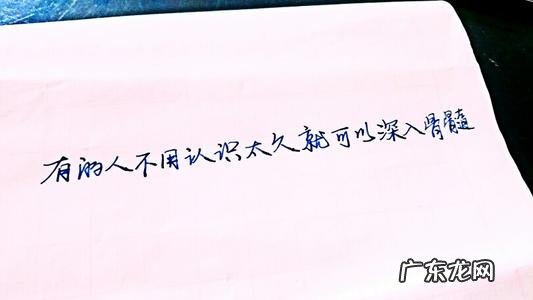 有的人不用认识太久就可以深入骨髓
广东龙网